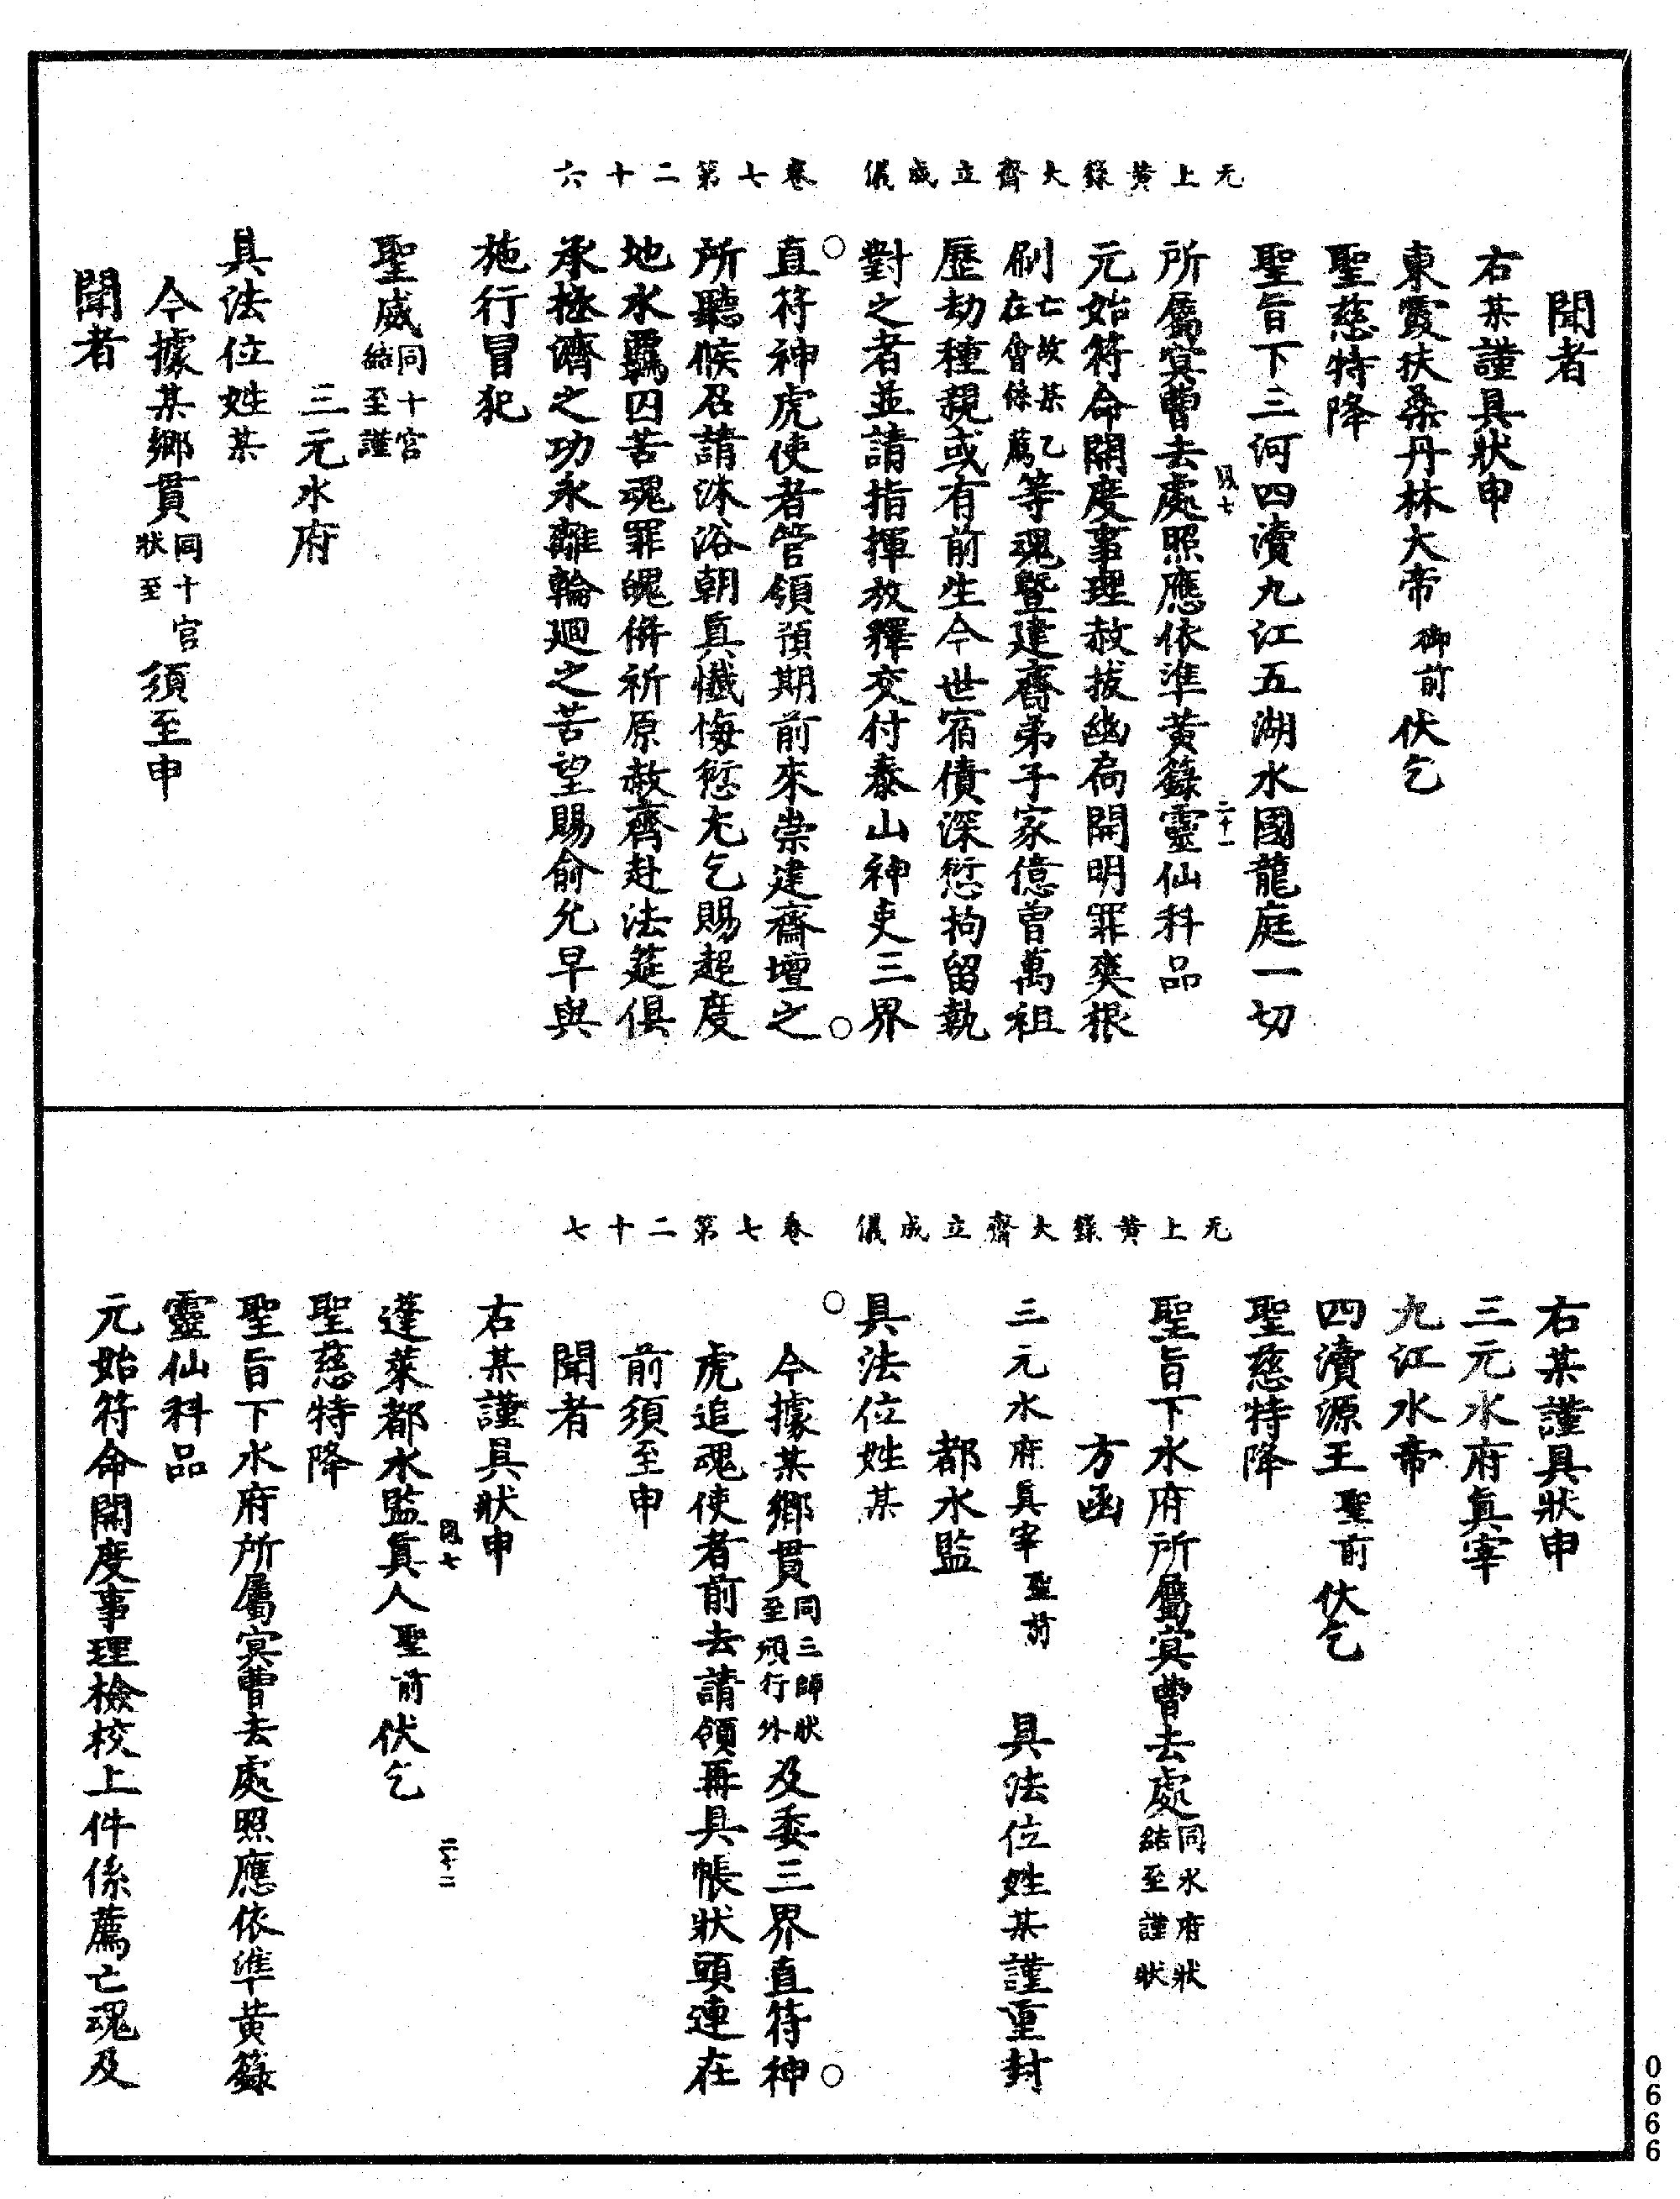 无上黃籙大齋立成儀　卷七第二十六
聞者
右某謹具狀申
東霞扶桑丹林大帝　御前伏乞
聖慈特降
聖旨下三河四瀆九江五湖水國龍庭一切
風七　二十一
所屬冥曹去處照應依準黃籙靈仙科品
元始符命開度事理赦拔幽扃開明罪爽根
刷亡故某乙在會係薦等魂暨建齋弟子家億曾萬祖
歷劫種親或有前生今世宿債深愆拘留執
對之者並請指揮放釋交付泰山神吏三界
直符神虎使者管領預期前來崇建齋壇之
所聽候召請沐浴朝眞懺悔愆尤乞賜超度
地水羈囚苦魂罪魄併祈原赦齊赴法筵俱
承拯濟之功永離輪迴之苦望賜俞允早與
施行冒犯
聖威同十官結至謹
三元水府
具法位姓某
今據某鄉貫同十官狀至須至申
聞者
无上黃籙大齋立成儀　卷七第二十七
右某謹具狀申
三元水府眞宰
九江水帝
四瀆源王　聖前伏乞
聖慈特降
聖旨下水府所屬冥曹去處同水府狀結至謹狀
方函
三元水府眞宰　聖前　具法位姓某謹重封
都水監
具法位姓某
今據某鄉貫同三師狀至頒行外及委三界直符神
虎追魂使者前去請領再具帳狀頭連在
前須至申
聞者
右某謹具狀申
風七　二十二
蓬萊都水監眞人　聖前伏乞
聖慈特降
聖旨下水府所屬冥曹去處照應依準黃籙
靈仙科品
元始符命開度事理檢校上件係薦亡魂及
0666